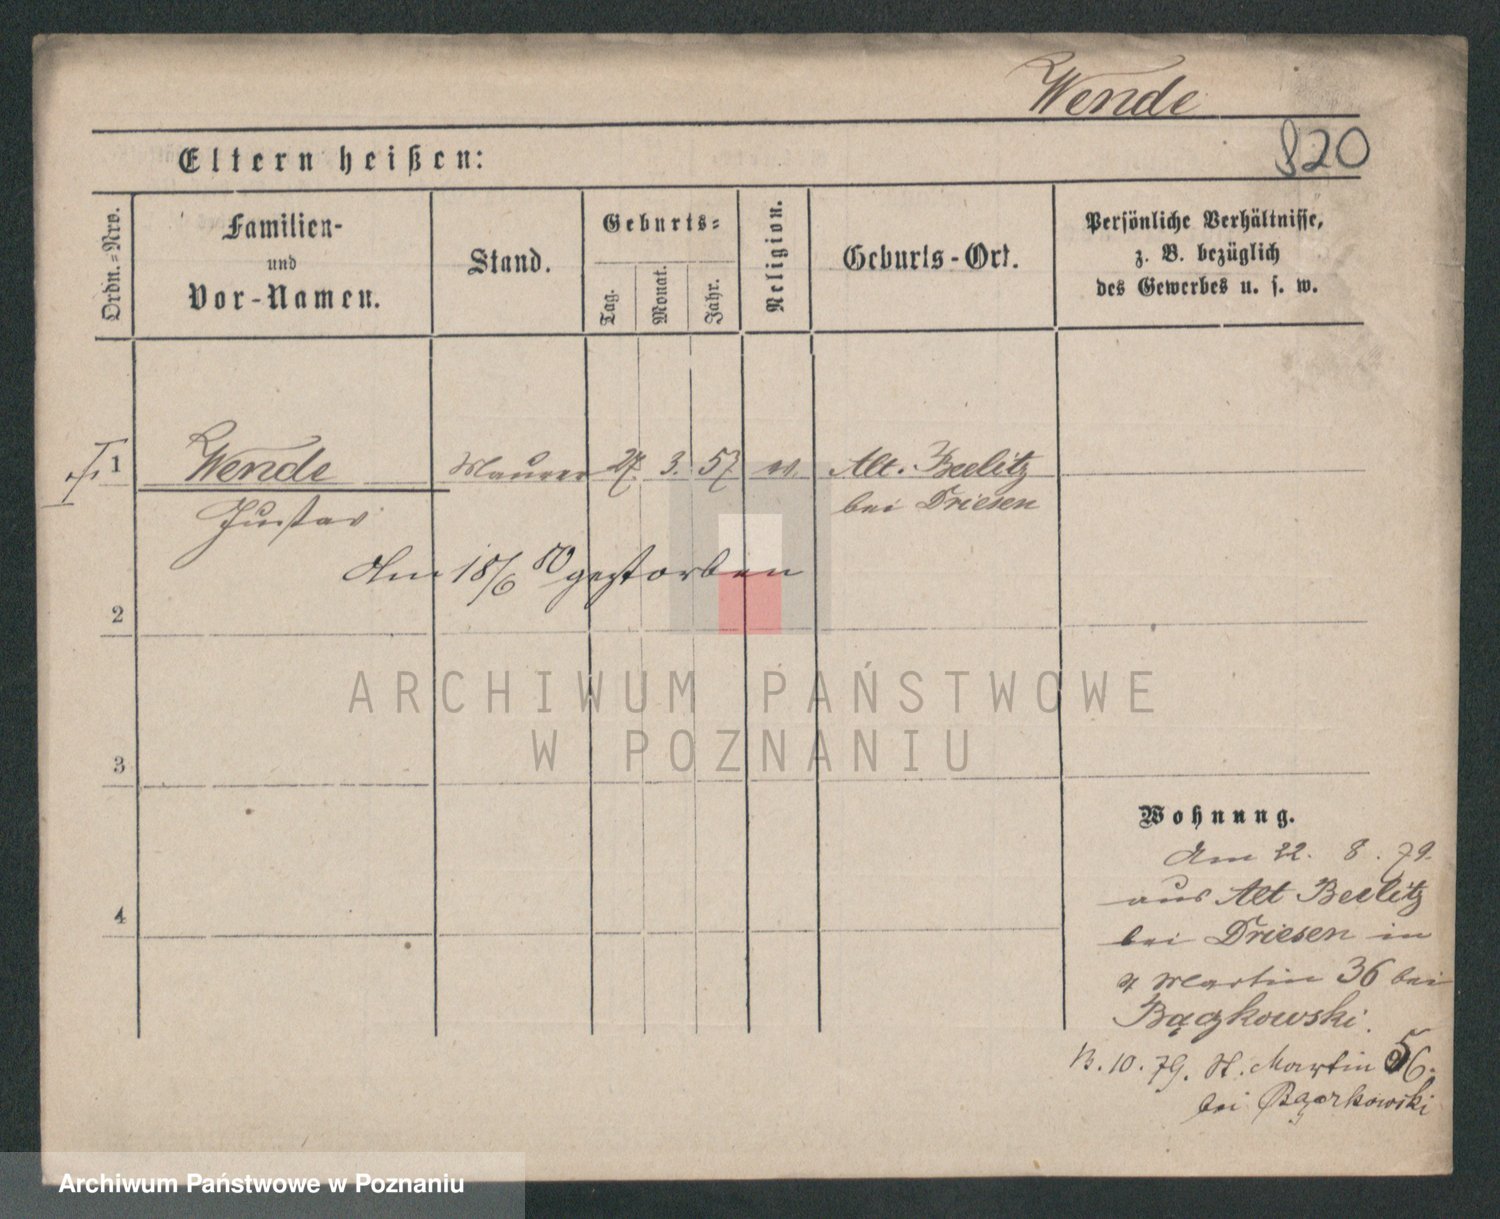 Wende
820
Eltern heißen:
Ordn.=Nro.
Familien-
und
Vor-Namen.
Stand.
Geburts=
Tag.
Monat.
Jahr.
Religion.
Geburts-Ort.
Persönliche Verhältnisse,
z. B. bezüglich
des Gewerbes u. s. w.
1 Wende Maurer 27. 3. 57 Alt. Beelitz
Gustav bei Driesen
Am 18/6 80 gestorben
2
3
4
Wohnung.
Am 22. 8. 79.
aus Alt Beelitz
bei Driesen in
Martin 36 bei
Bączkowski.
13.10.79. St. Martin 56.
bei Bączkowski
ARCHIWUM PAŃSTWOWE
W POZNANIU
Archiwum Państwowe w Poznaniu